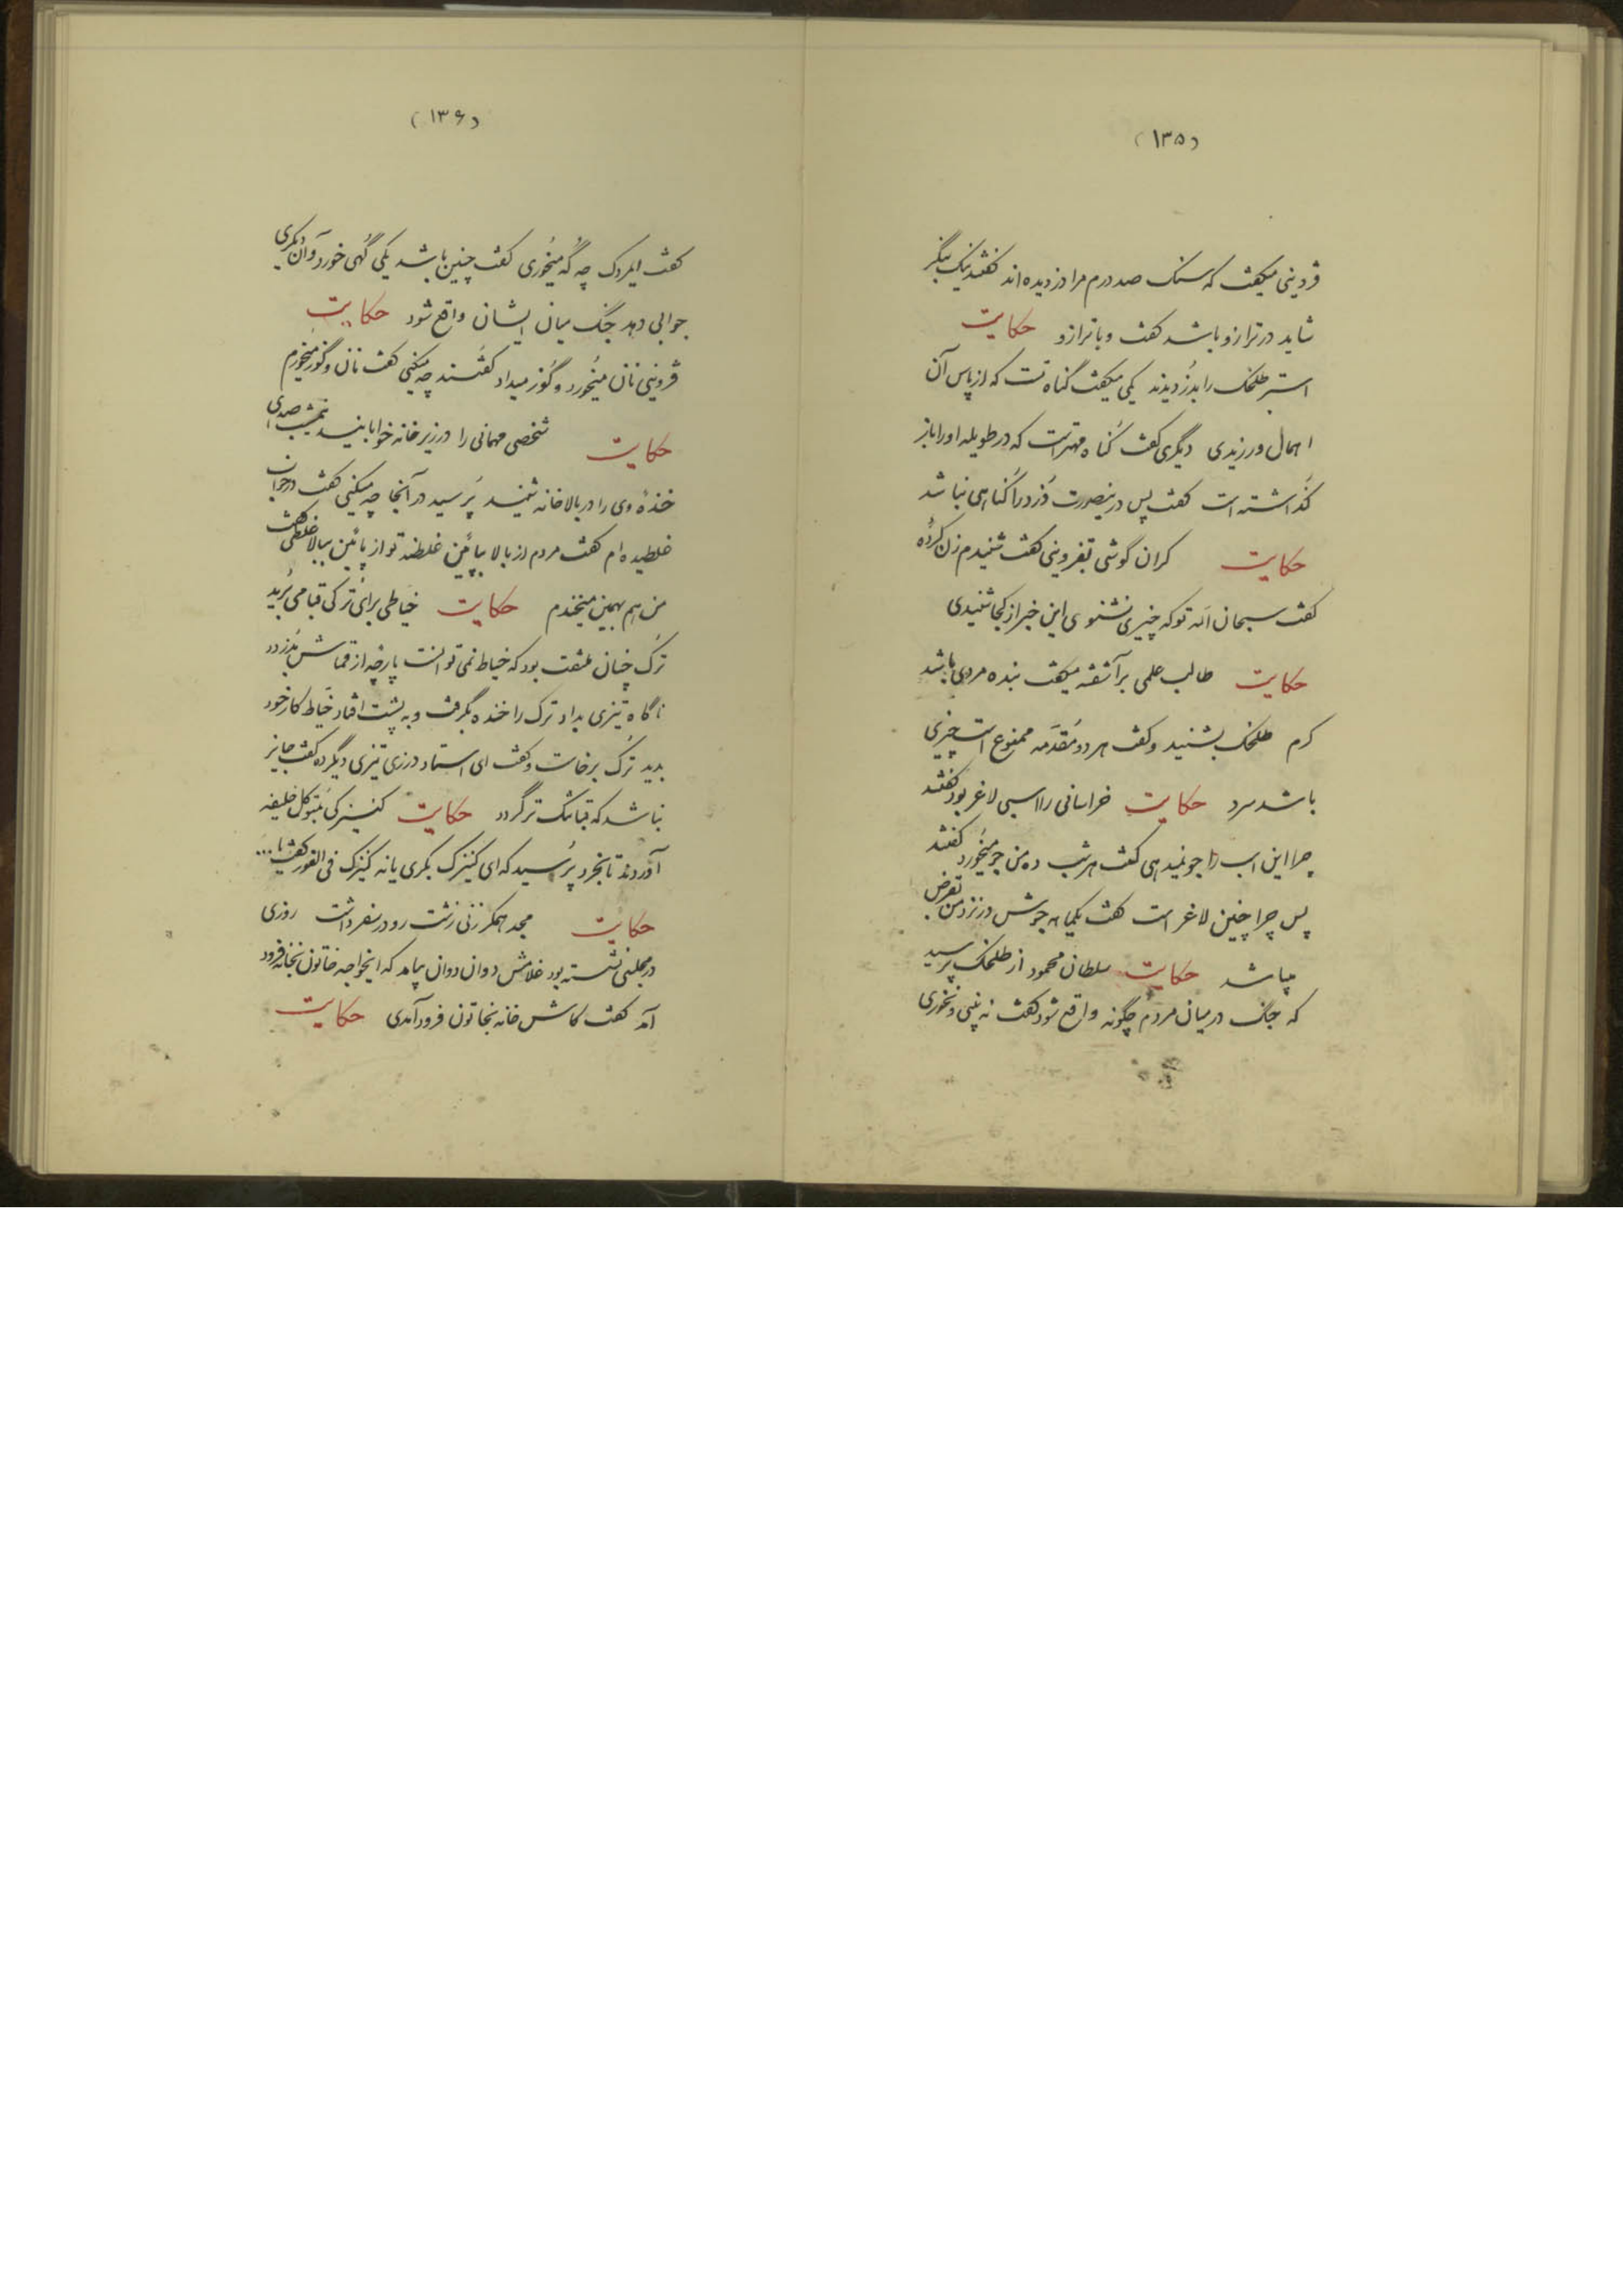 (۱۳۵)
قزوینی میگفت که سنک صد درم مرا دزدیده اند گفتند نیک بنگر
شاید در ترازو باشد گفت وبا ترازو حکایت
استر طلخک را بدُزدیدند یکی میگفت گناه تست که از پاس آن
اهمال ورزیدی دیگری گفت گناه مهتر است که در طویله را باز
گذاشته است گفت پس درینصورت دُزد را گناهی نباشد
حکایت کران گوشی بقزوینی گفت شنیدم زن کردهٔ
گفت سبحان الله تو که چیزی نشنوی این خبر از کجا شنیدی
حکایت طالب علمی برآشفته میگفت بنده مردی باشد
کرم طلخک بشنید و گفت هر دو مُقدّمه ممنوع است چیزی
باشد سرد حکایت خراسانی را اسبی لاغر بود گفتند
چرا این اسب را جو نمیدهی گفت هر شب ده من جو میخورد گفتند
پس چرا چنین لاغر است گفت یکماهه جوش در نزد من بقرض
میباشد حکایت سلطان محمود از طلخک پرسید
که جنگ در میان مردم چگونه واقع شود گفت نه بینی و نخوری
(۱۳۶)
گفت ایمردک چه گُه میخوری گفت چنین باشد یکی گُهی خورد و آن دیگری
جوابی دهد جنگ میان ایشان واقع شود حکایت
قزوینی نان میخورد و گوز میداد گفتند چه میکنی گفت نان و گوز میخورم
حکایت شخصی مهمانی را در زیر خانه خوابانید نیمشب صدای
خندهٔ وی را در بالا خانه شنید پُرسید در آنجا چه میکنی گفت در خواب
غلطیده ام گفت مردم از بالا بپائین غلطند تو از پائین ببالا غلطی گفت
من هم بهمین میخندم حکایت خیاطی برای تُرکی قبا می بُرید
ترک چنان ملتفت بود که خیاط نمی توانست پارچه از قماش بدُزدد
ناگاه تیزی بداد ترک را خنده بگرفت و به پشت افتاد خیاط کار خود
بدید تُرک برخاست و گفت ای استاد درزی تیزی دیگر ده گفت جایز
نباشد که قبا تنک تر گردد حکایت کنیزکی بمتوکل خلیفه
آوردند تا بخرد پرسید که ای کنیزک بکری یا نه کنیزک فی الفور گفت یا...
حکایت مجد همگر زنی زشت رو در سفر داشت روزی
در مجلسی نشسته بود غلامش دوان دوان بیامد که ایخواجه خاتون بخانه فرود
آمد گفت کاش خانه بخاتون فرود آمدی حکایت